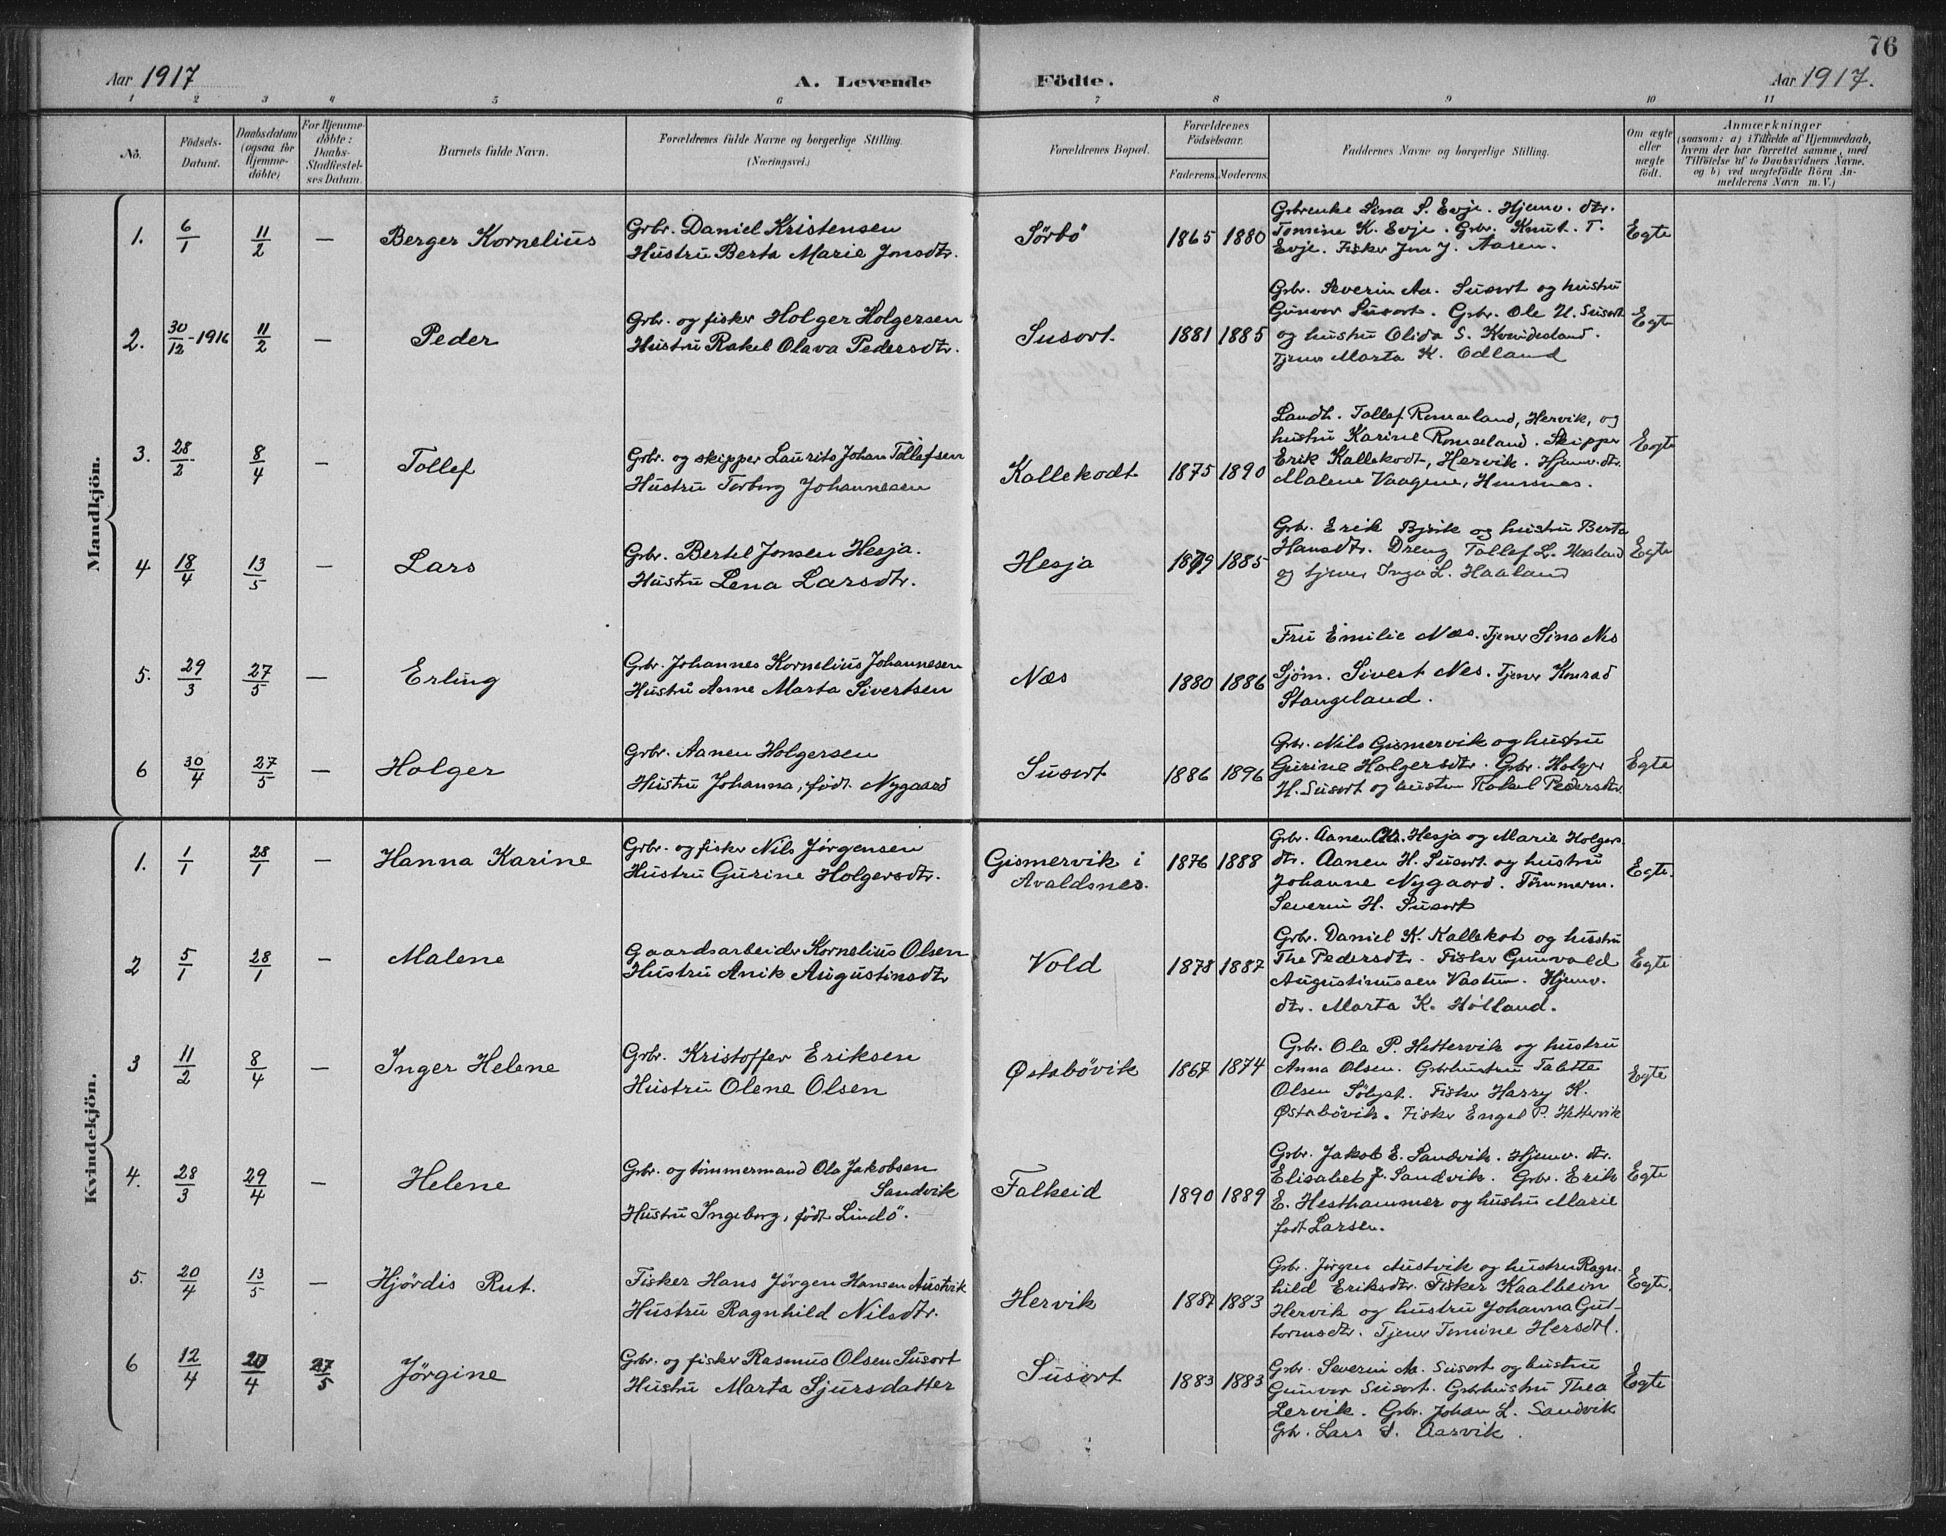 76
Aar 1917
A. Levende
Födte.
Aar 1917.
1 2 3 4 5 6 7 8 9 10 11
No.
Födsels-
Datum.
Daabsdatum
(ogsaa for
Hjemme-
döbte)
For Hjemme-
döbte:
Daabs-
Stadfæstel-
ses Datum.
Barnets fulde Navn.
Forældrenes fulde Navne og borgerlige Stilling.
(Næringsvei.)
Forældrenes Bopæl.
Forældrenes
Födselsaar.
Faderens. Moderens.
Faddernes Navne og borgerlige Stilling.
Om ægte
eller
uægte
födt.
Anmærkninger
(saasom: a) i Tilfælde af Hjemmedaab,
hvem der har forrettet samme, med
Tilföielse af to Daabsvidners Navne.
og b) ved uægtefödte Börn An-
melderens Navn m. V.)
Mandkjön.
1. 6/1 11/2 — Berger Kornelius
Grbr. Daniel Kristensen
Hustru Berta Marie Jonsdtr.
Sørbø 1865 1880
Grbrenke Sina S. Evje. Hjemv. dtr.
Tomine K. Evje. Grbr. Knut. T.
Evje. Fisker Jon J. Aasen.
Egte
2. 30/12-1916 11/2 — Peder
Grbr. og fisker Holger Holgersen
Hustru Rakel Olava Pedersdtr.
Susort. 1881 1885
Grbr. Severin Aa. Susort og hustru
Gunvor Susort. Grbr. Ole H. Susort
og hustru Olida S. Kvindesland.
Tjener Marta K. Odland
Egte
3. 28/2 8/4 — Tollef
Grbr. og skipper Laurits Johan Tollefsen
Hustru Torborg Johannesen
Kallekodt 1875 1890
Landh. Tollef Romseland, Hervik, og
hustru Karine Romseland. Skipper
Erik Kallekodt, Hervik. Hjemv. dtr.
Malene Vaagene,
Egte
4 18/4 13/5 — Lars
Grbr. Bertel Jonsen Hesja.
Hustru Lena Larsdtr.
Hesja 1879 1885
Grbr. Erik Bjoik og hustru Berta
Hansdtr. Dreng Tollef L. Haaland
og tjener Inga L. Haaland
Egte
5. 29/3 27/5 — Erling
Grbr. Johannes Kornelius Johannesen
Hustru Anne Marta Sivertsen
Næs 1880 1886
Fru Emilie Næs. Tjener Sina Nes
Sjøm. Sivert Nes. Tjener Konrad
Stangeland.
6 30/4 27/5 — Holger
Grbr. Aanen Holgersen
Hustru Johanna, født Nygaard
Susort 1886 1896
Grbr. Nils Gismervik og hustru
Gurine Holgersdtr. Grbr. Holger
H. Susort og hustru Rakel Pedersdtr.
Egte
Kvindekjön.
1. 1/1 28/1 — Hanna Karine
Grbr. og fisker Nils Jørgensen
Hustru Gurine Holgersdtr.
Gismervik i
Avaldsnes. 1876 1888
Grbr. Aanen Chr. Hesja og Marie Holgers-
dtr. Aanen H. Susort og hustru
Johanne Nygaard. Tømmerm.
Severin H. Susort
Egte.
2 5/1 28/1 — Malene
Gaardsarbeider Kornelius Olsen
Hustru Anik Augustinsdtr
Vold 1878 1887
Grbr. Daniel K. Kallekot og hustru
The Pedersdtr. Fisker Gunvald
Augustinussen Vastun. Hjemv.
dtr. Marta K. Hølland.
Egte
3 11/2 8/4 — Inger Helene
Grbr. Kristoffer Eriksen
Hustru Olene Olsen
Østabøvik 1867 1874
Grbr. Ole P. Hettervik og hustru
Anna Olsen. Grbrhustru Talette
Olsen Fisker Harry K.
Østabøvik. Fisker Engel P. Hettervik
Egte
4. 28/3 29/4 — Helene
Grbr. og tømmermand Ola Jakobsen
Sandvik
Hustru Ingeborg, født Lindø.
Falkeid 1890 1889
Grbr. Jakob E. Sandvik. Hjemv. dtr.
Elisabet J. Sandvik. Grbr. Erik
E. Hesthammer og hustru Marie
født Larsen.
Egte
5. 20/4 13/5 — Hjørdis Rut.
Fisker Hans Jørgen Hansen Austvik
Hustru Ragnhild Nilsdtr.
Hervik 1887 1883
Grbr. Jørgen Austvik og hustru Ragn-
hild Eriksdtr. Fisker Kaalbein
Hervik og hustru Johanna Gut-
tormsdtr. Tjener Tomine
Egte.
6 12/4 20/4 27/5 Jørgine
Grbr. og fisker Rasmus Olsen Susort
Hustru Marta Sjursdatter
Susort 1883 1883
Grbr. Severin Aa. Susort og hustru
Gunvor Susort. Grbrhustru Thea
Lervik. Grbr. Johan L. Sandvik
Grbr. Lars S. Aasvik.
Egte